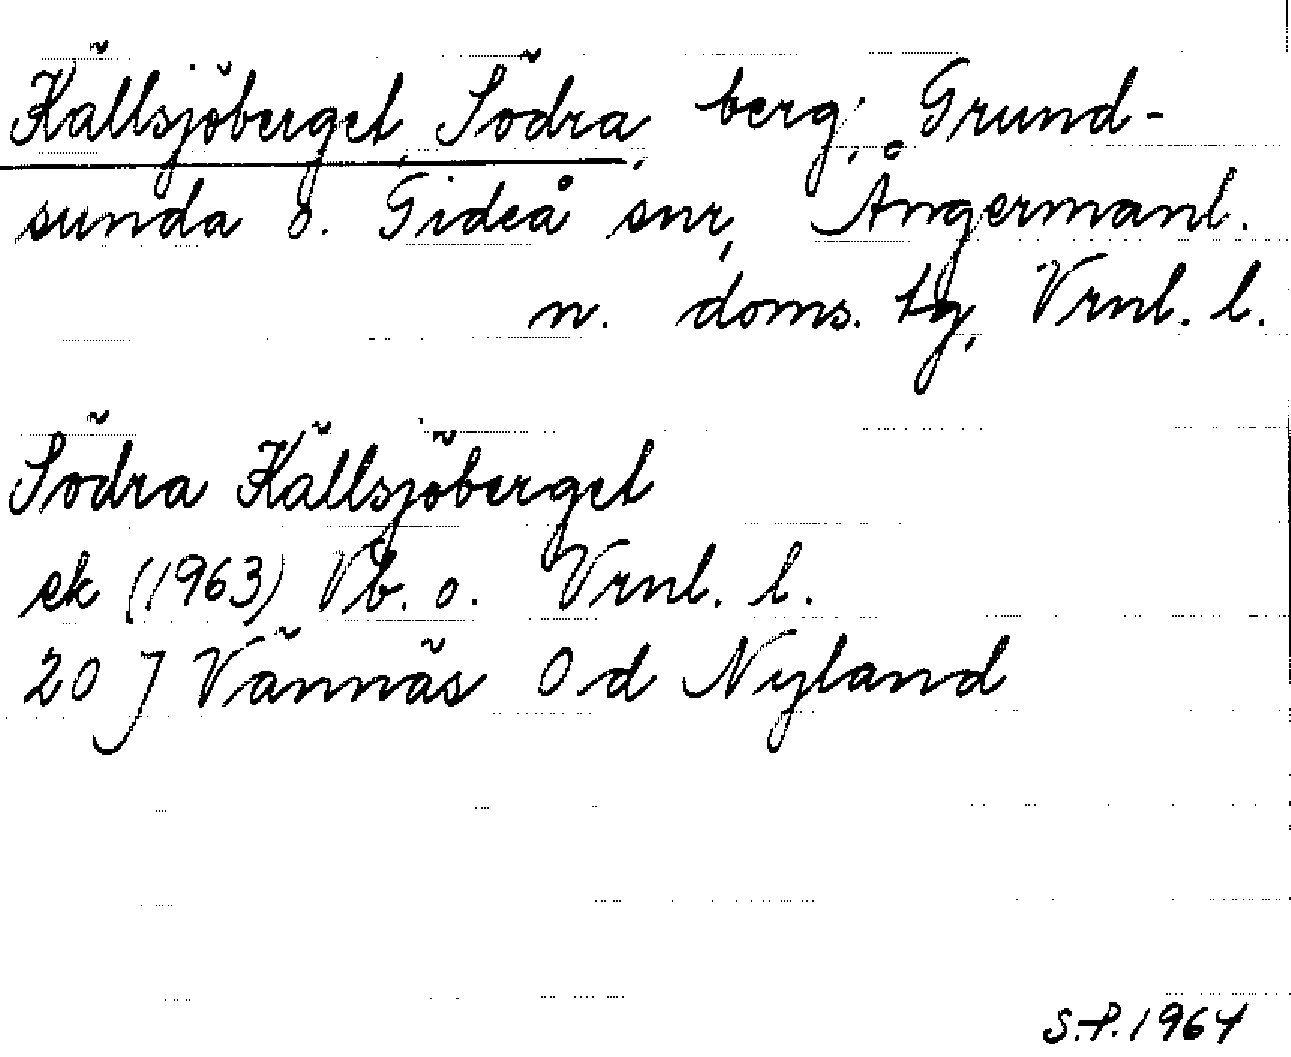 Källsjöberget, Södra, berg, Grund-
sunda o. Gideå snr, Ångermanl.
n. doms. tg, Vrnl. l.
Södra Källsjöberget
ek (1963) Vb. o. Vrnl. l.
20 J Vännäs 0 d Nyland
S.P. 1964